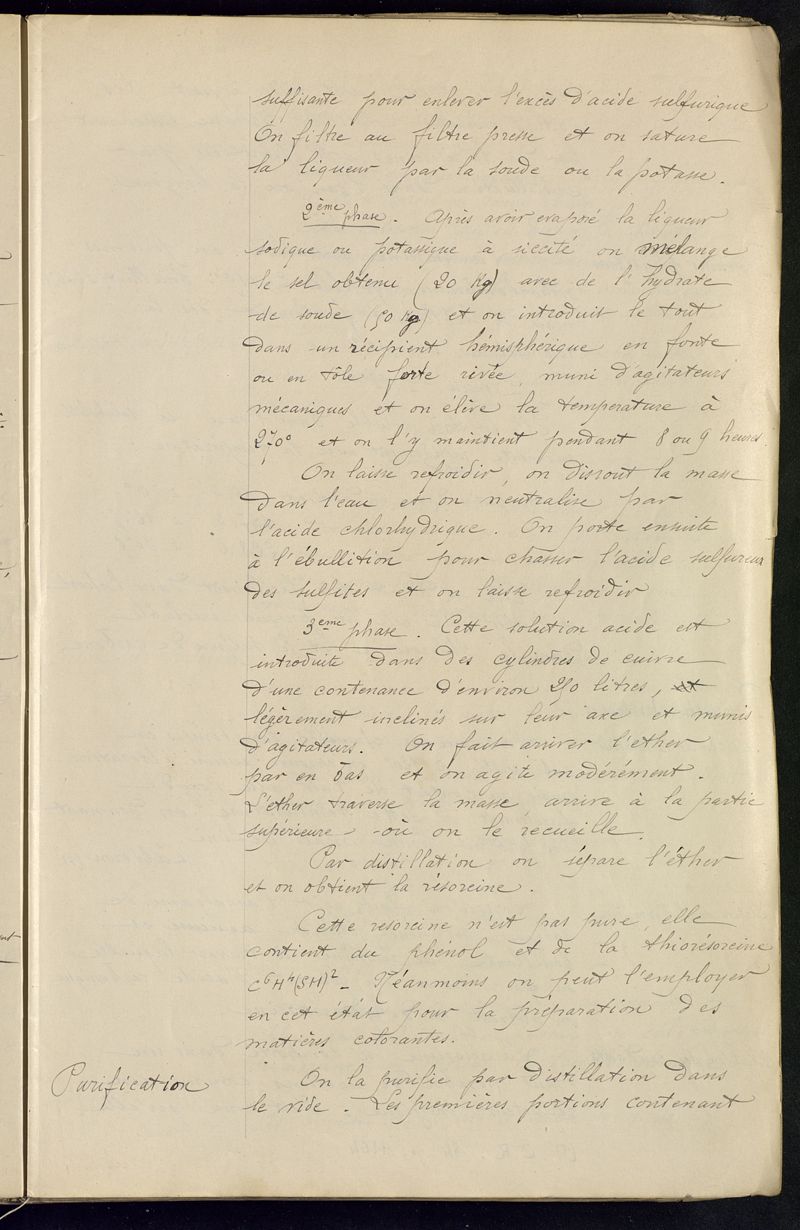 suffisante pour enlever l'excès d'acide sulfurique
On filtre au filtre presse et on sature
la liqueur par la soude ou la potasse.
2ème phase. Après avoir evaporé la liqueur
sodique ou potassique à siccité on mélange
le sel obtenu (20 Kg) avec de l'hydrate
de soude (50 Kg) et on introduit le tout
dans un récipient hémisphérique en fonte
ou en tôle forte rivée, muni d'agitateurs
mécaniques et on élève la temperature à
270° et on l'y maintient pendant 8 ou 9 heures.
On laisse refroidir, on dissout la masse
dans l'eau et on neutralise par
l'acide chlorhydrique. On porte ensuite
à l'ébullition pour chasser l'acide sulfureux
des sulfites et on laisse refroidir
3eme phase. Cette solution acide est
introduite dans des cylindres de cuivre
d'une contenance d'environ 250 litres, et
légèrement inclinés sur leur axe et munis
d'agitateurs. On fait arriver l'ether
par en bas et on agite modérément.
L'ether traverse la masse, arrive à la partie
supérieure où on le recueille.
Par distillation on sépare l'éther
et on obtient la résorcine.
Cette resorcine n'est pas pure, elle
contient du phénol et de la thiorésorcine
C⁶H⁴(SH)² - Néanmoins on peut l'employer
en cet état pour la préparation des
matières colorantes.
Purification
On la purifie par distillation dans
le vide. Les premières portions contenant